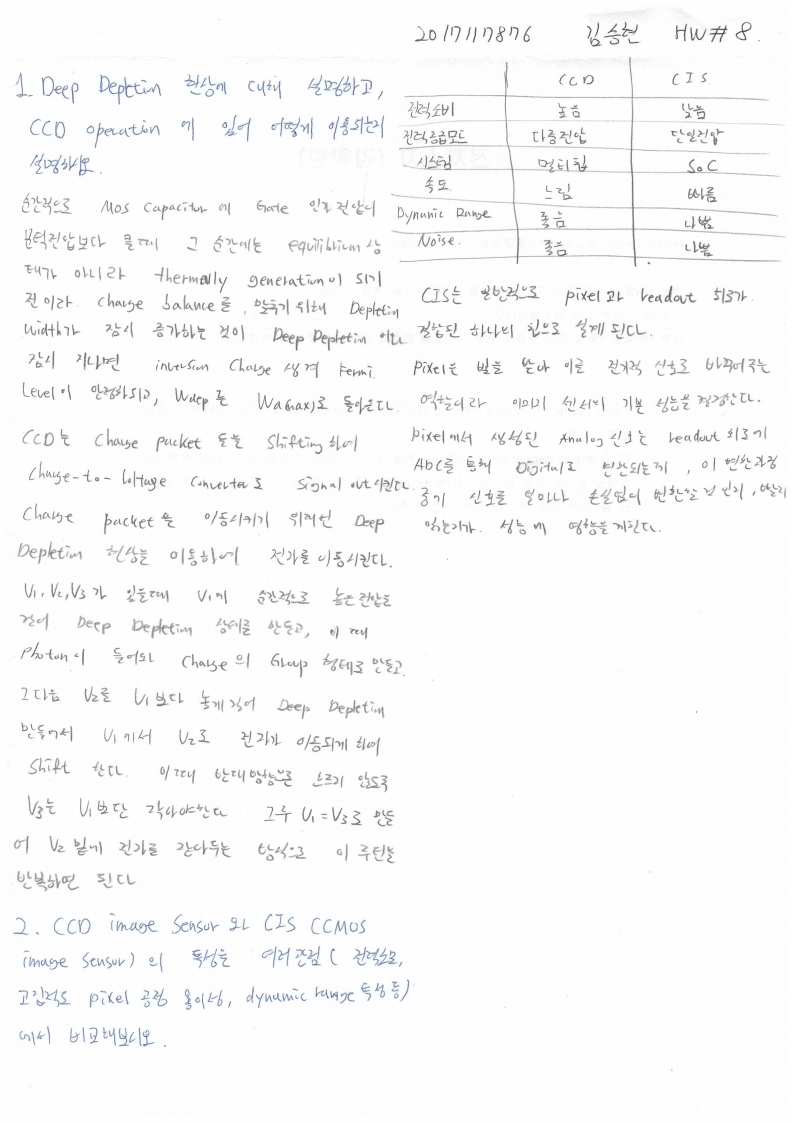 2017117876 김승현 HW#8.
1. Deep Depletin 현상에 대해 설명하고,
CCD operation 에 있어 어떻게 이용되는지
설명하시오.
순간적으로 Mos Capacitor 에 Gate 인가전압이
문턱전압보다 클때 그 순간에는 equilibrium 상
태가 아니라 thermally generation이 되기
전이라. Charge balance를 맞추기 위해 Depletin
Width가 잠시 증가하는 것이 Deep Depletin 이다
잠시 지나면 inversion Charge 생겨 Fermi
Level이 안정화되고, Wdep 은 Wd(max)로 돌아온다.
CCD는 Charge packet 들을 Shifting 하여
Charge-to-Voltage Converter로 Signal out시킨다.
Charge packet을 이동시키기 위해선 Deep
Depletin 현상을 이용하여 전자를 이동시킨다.
V1, V2, V3 가 있을때 V1에 순간적으로 높은전압을
걸어 Deep Depletin 상태를 만들고, 이 때
Photon이 들어와 Charge의 Group 형태로 만들고
그다음 V2를 V1보다 높게 걸어 Deep Depletin
만들어서 V1에서 V2로 전자가 이동되게 하여
Shift 한다. 이때 반대방향으로 흐르기 않도록
V3는 V1보단 작아야한다. 그후 V1=V3로 만들
어 V2 밑에 전자를 갇다두는 방식으로 이 루틴을
반복하면 된다
2. CCD image Sensor 와 CIS CCMOS
image Sensor) 의 특성을 여러관점 ( 전력소모,
고집적도 pixel 공정 용이성, dynamic range 특성 등)
에서 비교해보시오.
CCD CIS
전력소비 높음 낮음
전력공급모드 다중전압 단일전압
시스템 멀티칩 SoC
속도. 느림 빠름
Dynamic Range 좋음 나쁨
Noise. 좋음 나쁨
CIS는 일반적으로 pixel 과 readout 회로가
집합된 하나의 칩으로 설계 된다.
Pixel은 빛을 받아 이를 전기적 신호로 바꾸어주는
역할이라 이미지 센서의 기본 성능을 결정한다.
pixel에서 생성된 Analog 신호는 readout 회로의
ADC를 통해 Digital로 변환되는데, 이 변환과정
중기 신호를 얼마나 손실없이 변환할 것 인지, 빨리
읽는지가. 성능에 영향을 끼친다.